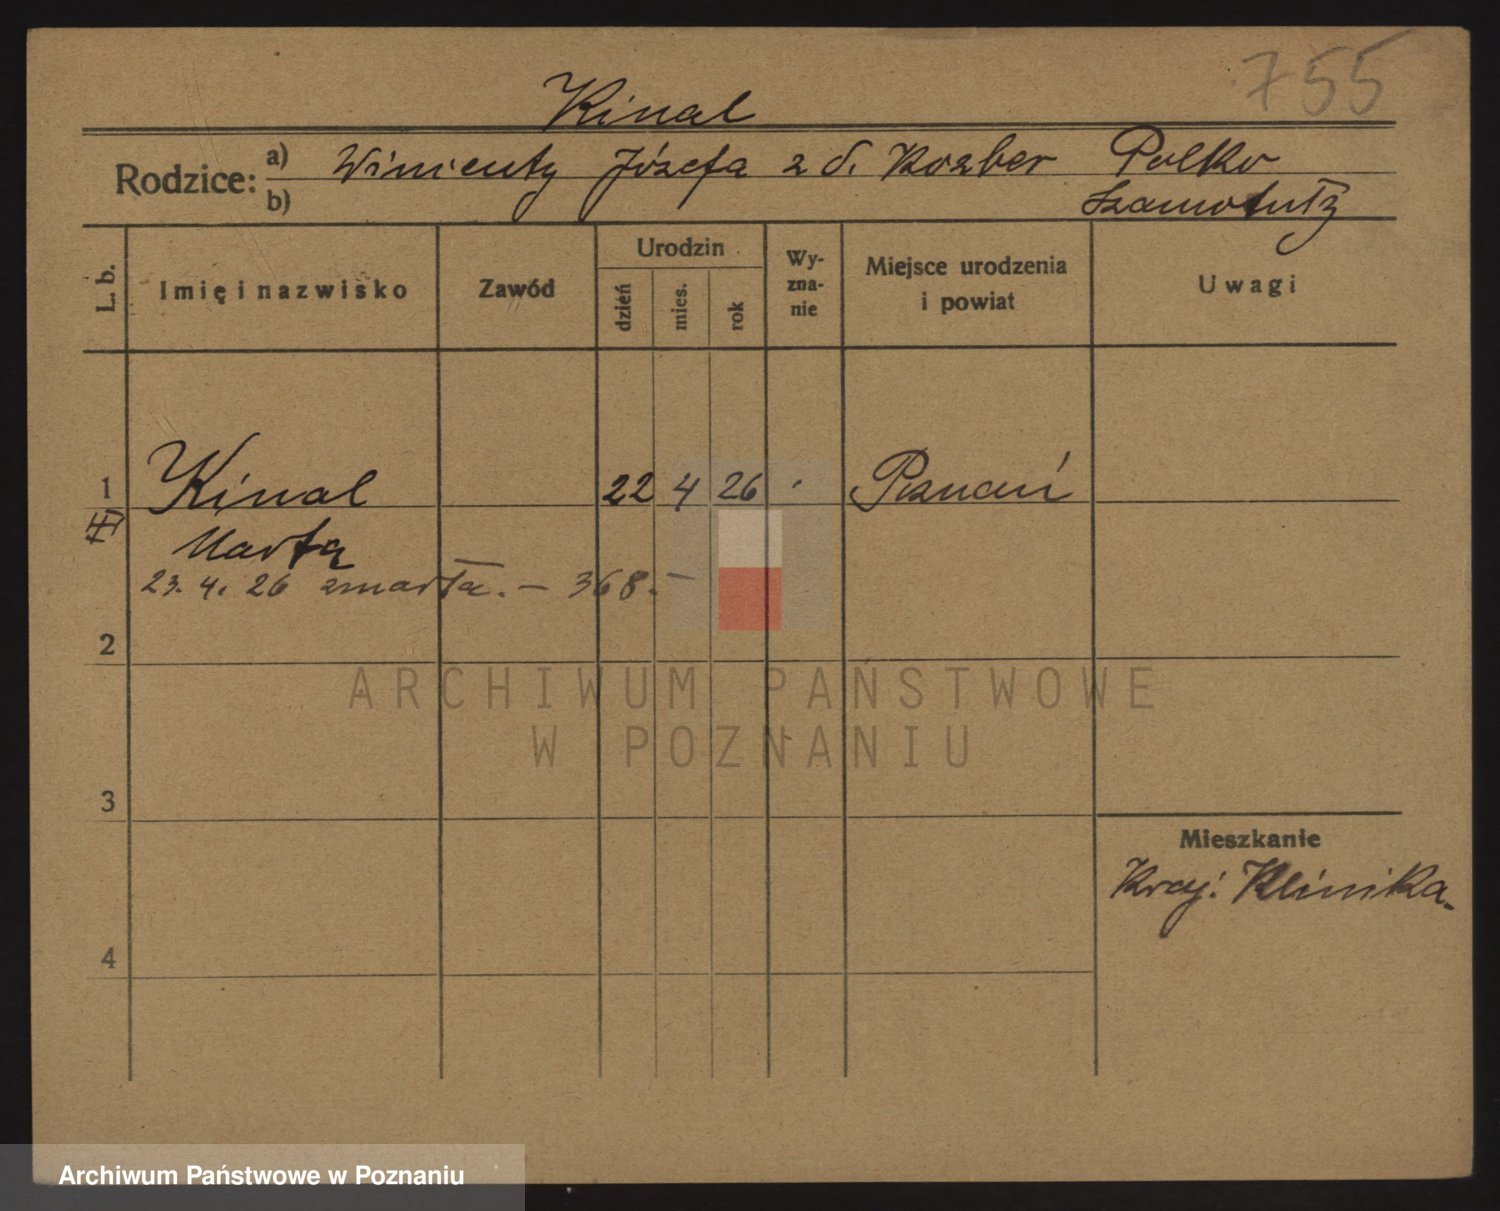 755
Kinal
Rodzice: a) Winienty Józefa z d. Kozber Polko
b) Szamotuły
L. b. Imię i nazwisko Zawód Urodzin dzień mies. rok Wy-zna-nie Miejsce urodzenia i powiat Uwagi
1 Kinal 22 4 26 Poznań
Marta
23. 4. 26 zmarła. — 368. —
2
ARCHIWUM PAŃSTWOWE
W POZNANIU
3
Mieszkanie
Kraj. Klinika.
4
Archiwum Państwowe w Poznaniu